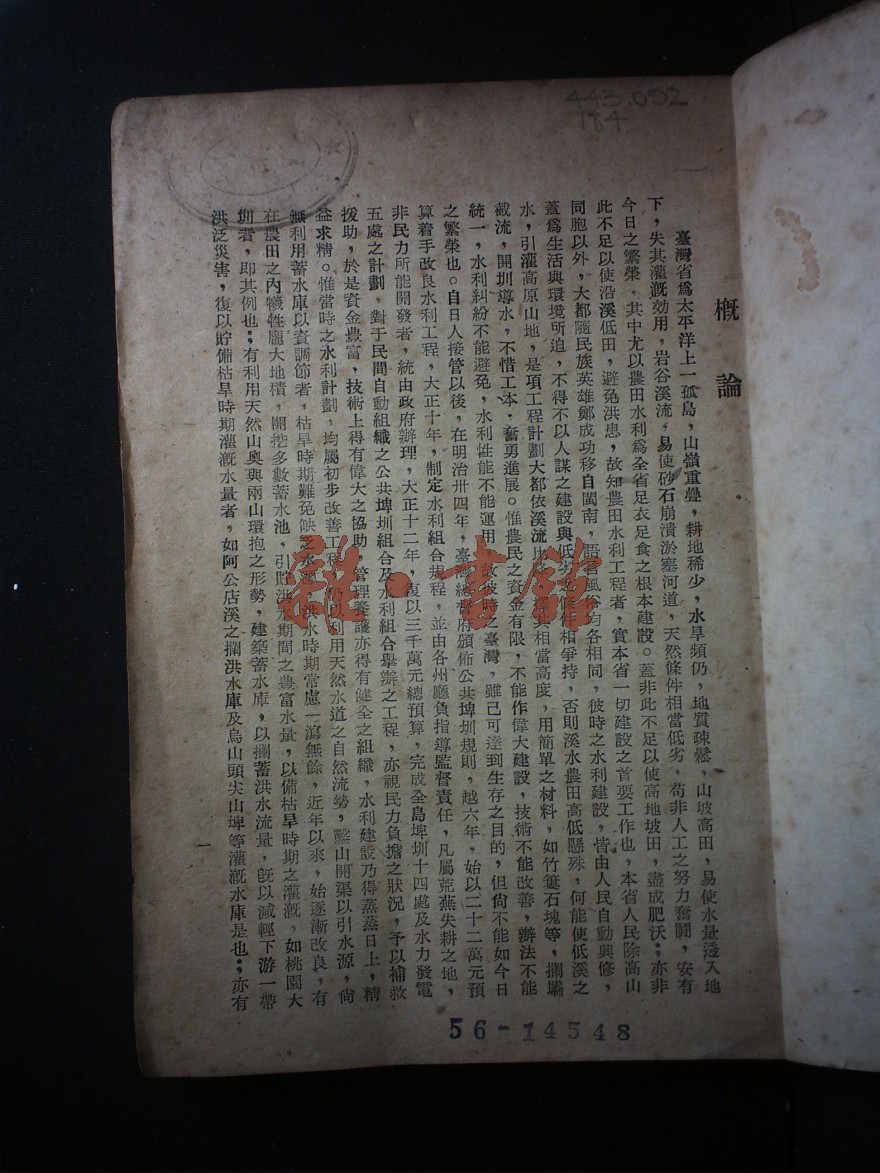 443.092
184
概論
臺灣省爲太平洋上一孤島，山嶺重疊，耕地稀少，水旱頻仍，地質疎鬆，山坡高田，易使水量透入地
下，失其灌漑効用，岩谷溪流，易使砂石崩潰淤塞河道，天然條件相當低劣，苟非人工之努力奮鬪，安有
今日之繁榮，其中尤以農田水利爲全省足衣足食之根本建設。蓋非此不足以使高地坡田，盡成肥沃；亦非
此不足以使沿溪低田，避免洪患，故知農田水利工程者，實本省一切建設之首要工作也，本省人民除高山
同胞以外，大都隨民族英雄鄭成功移自閩南，語言風俗均各相同，彼時之水利建設，皆由人民自動興修，
蓋爲生活與環境所迫，不得不以人謀之建設與低劣之條件相爭持，否則溪水農田高低懸殊，何能使低溪之
水，引灌高原山地，是項工程計劃大都依溪流比降，其相當高度，用簡單之材料，如竹簍石塊等，攔壩
截流，開圳導水，不惜工本，奮勇進展。惟農民之資金有限，不能作偉大建設，技術不能改善，辦法不能
統一，水利糾紛不能避免，水利性能不能運用，故彼時之臺灣，雖已可達到生存之目的，但尙不能如今日
之繁榮也。自日人接管以後，在明治卅四年，臺灣總督府頒佈公共埤圳規則，越六年，始以二十二萬元預
算着手改良水利工程，大正十年，制定水利組合規程，並由各州廳負指導監督責任，凡屬荒蕪失耕之地，
非民力所能開發者，統由政府辦理，大正十二年，復以三千萬元總預算，完成全島埤圳十四處及水力發電
五處之計劃，對于民間自動組織之公共埤圳組合及水利組合舉辦之工程，亦視民力負擔之狀況，予以補救
援助，於是資金豊富，技術上得有偉大之協助，管理養護亦得有健全之組織，水利建設乃得蒸蒸日上，精
益求精。惟當時之水利計劃，均屬初步改善工程，仍以利用天然水道之自然流勢，鑿山開渠以引水源，尙
無利用蓄水庫以資調節者，枯旱時期難免缺乏水源，洪水時期常慮一瀉無餘，近年以來，始逐漸改良，有
在農田之內犧牲龐大地積，開挖多數蓄水池，引貯洪水期間之豊富水量，以備枯旱時期之灌漑，如桃園大
圳者，即其例也；有利用天然山奧與兩山環抱之形勢，建築蓄水庫，以攔蓄洪水流量，旣以減輕下游一帶
洪泛災害，復以貯備枯旱時期灌漑水量者，如阿公店溪之攔洪水庫及烏山頭尖山埤等灌漑水庫是也；亦有
一
56-14548
雜·書館